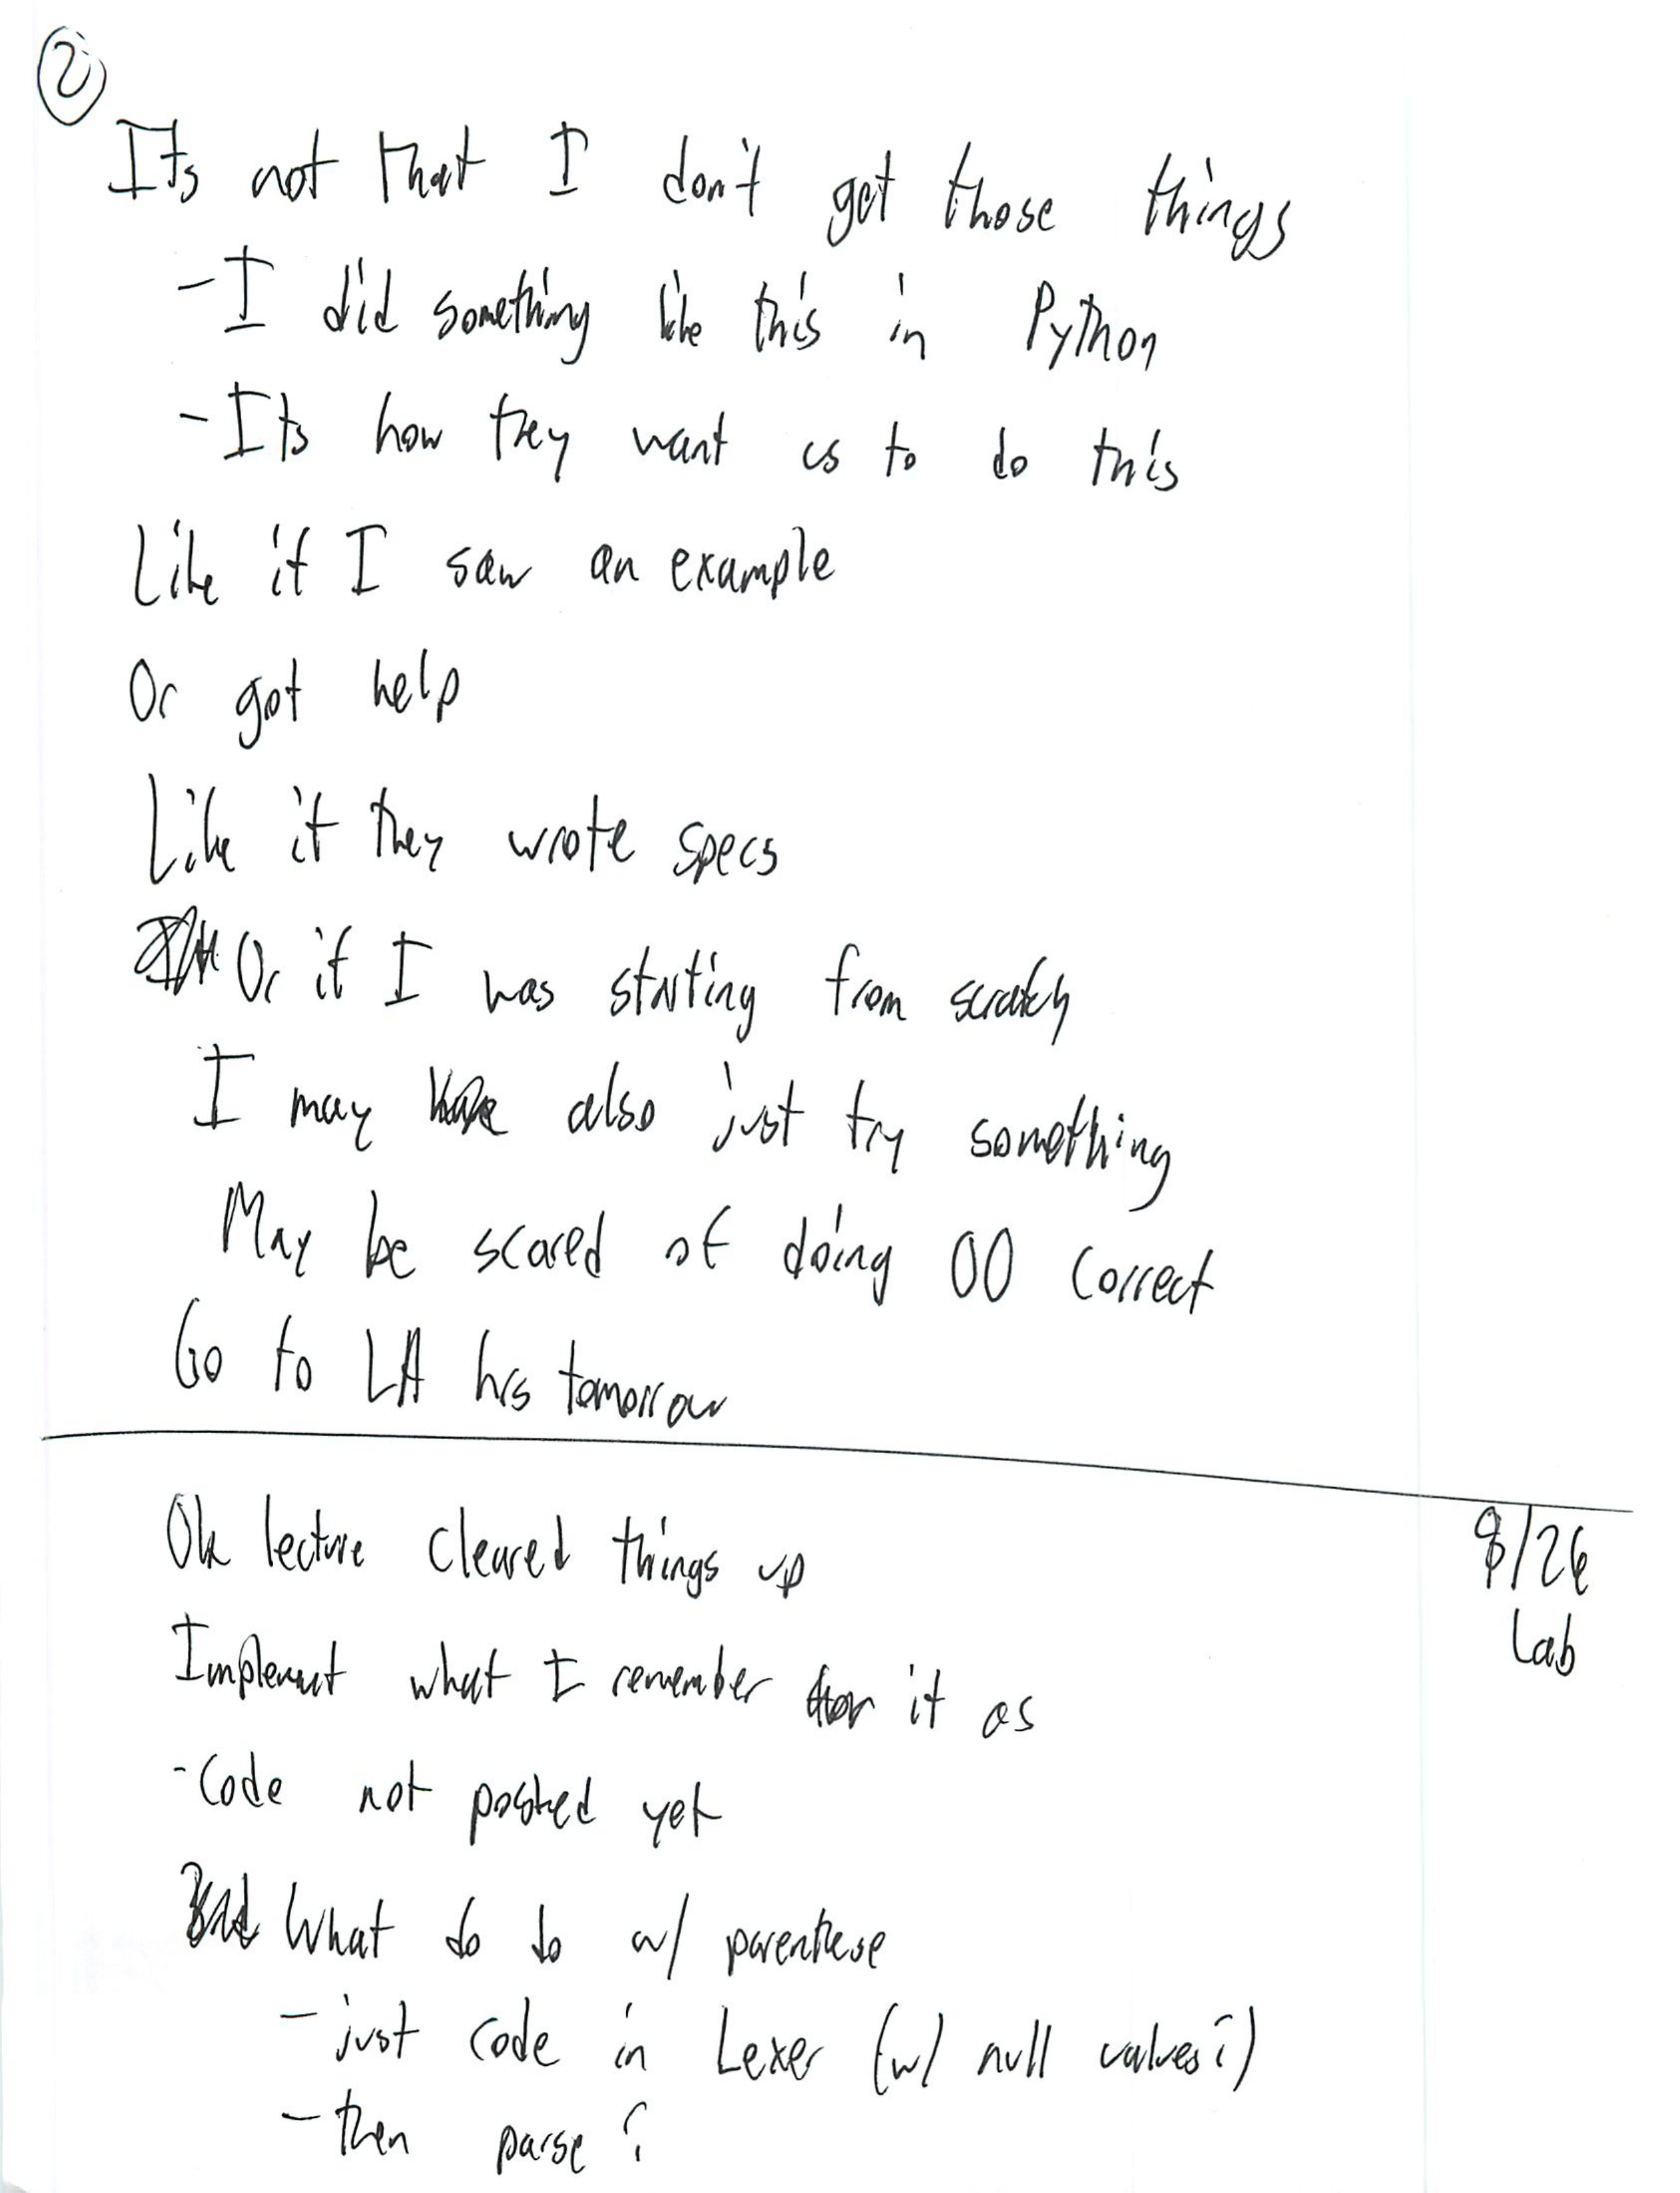 2
Its not that I don't get those things
- I did something like this in Python
- Its how they want us to do this
Like if I saw an example
Or got help
Like if they wrote specs
Or if I was starting from scratch
I may also just try something
May be scared of doing OO correct
Go to LA hrs tomorrow
Ok lecture cleared things up
8/26
Lab
Implement what I remember for it as
- Code not posted yet
What do do w/ parenthese
- just code in Lexer (w/ null values?)
- then parse?